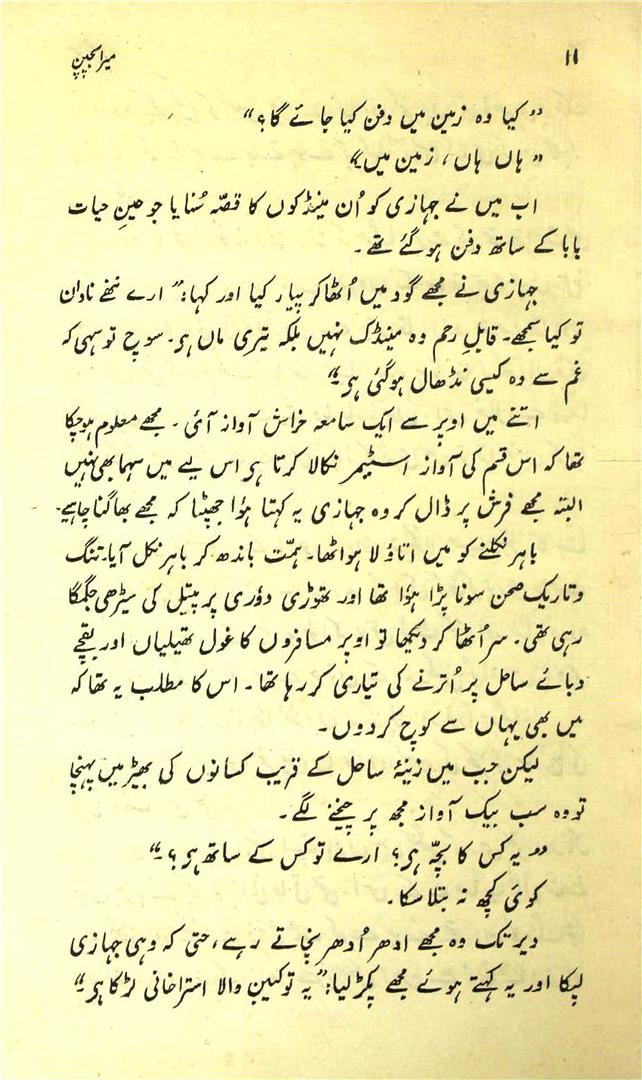 ۱۱ میرا بچپن
" کیا وہ زمین میں دفن کیا جائے گا؟"
" ہاں ہاں، زمین میں۔"
اب میں نے جہازی کو اُن مینڈکوں کا قصّہ سُنایا جو عینِ حیات
بابا کے ساتھ دفن ہو گئے تھے۔
جہازی نے مجھے گود میں اُٹھا کر پیار کیا اور کہا: "ارے ننھے نادان
تو کیا سمجھے۔ قابلِ رحم وہ مینڈک نہیں بلکہ تیری ماں ہی۔ سوچ تو سہی کہ
غم سے وہ کیسی نڈھال ہو گئی ہی۔"
اتنے میں اوپر سے ایک سامعہ خراش آواز آئی۔ مجھے معلوم ہو چکا
تھا کہ اس قسم کی آواز اسٹیمر نکالا کرتا ہی اس لیے میں سہما بھی نہیں
البتہ مجھے فرش پر ڈال کر وہ جہازی یہ کہتا ہؤا جھپٹا کہ مجھے بھاگنا چاہیے۔
باہر نکلنے کو میں اتاؤلا ہو اٹھا۔ ہمّت باندھ کر باہر نکل آیا۔ تنگ
و تاریک صحن سونا پڑا ہؤا تھا اور تھوڑی دؤری پر پیتل کی سیڑھی جگمگا
رہی تھی۔ سر اُٹھا کر دیکھا تو اوپر مسافروں کا غول تھیلیاں اور بقچے
دبائے ساحل پر اُترنے کی تیاری کر رہا تھا۔ اس کا مطلب یہ تھا کہ
میں بھی یہاں سے کوچ کر دوں۔
لیکن جب میں زینۂ ساحل کے قریب کسانوں کی بھیڑ میں پہنچا
تو وہ سب بیک آواز مجھ پر چیخنے لگے۔
" یہ کس کا بچّہ ہی؟ ارے تو کس کے ساتھ ہی؟۔"
کوئی کچھ نہ بتلا سکا۔
دیر تک وہ مجھے ادھر اُدھر نچاتے رہے، حتیٰ کہ وہی جہازی
لپکا اور یہ کہتے ہوئے مجھے پکڑ لیا: "یہ تو کیبن والا استراخانی لڑکا ہی۔"